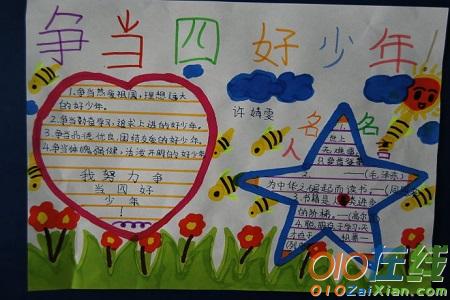 争当四好少年!
1.争当热爱祖国,理想远大
的好少年。
2.争当勤奋学习,追求上进的好少年。
3.争当品德优良,团结友爱的好少年。
4.争当体魄强健,活泼开朗的好少年
我努力争
当四好
少年
!
许婧雯
名人名言
世上
无难事
只要肯登攀
2.
——(毛泽东)
为中华之崛起而读书——(周
3.书籍是人类进步
的阶梯——(高尔
4.
010在线
010ZaiXian.com